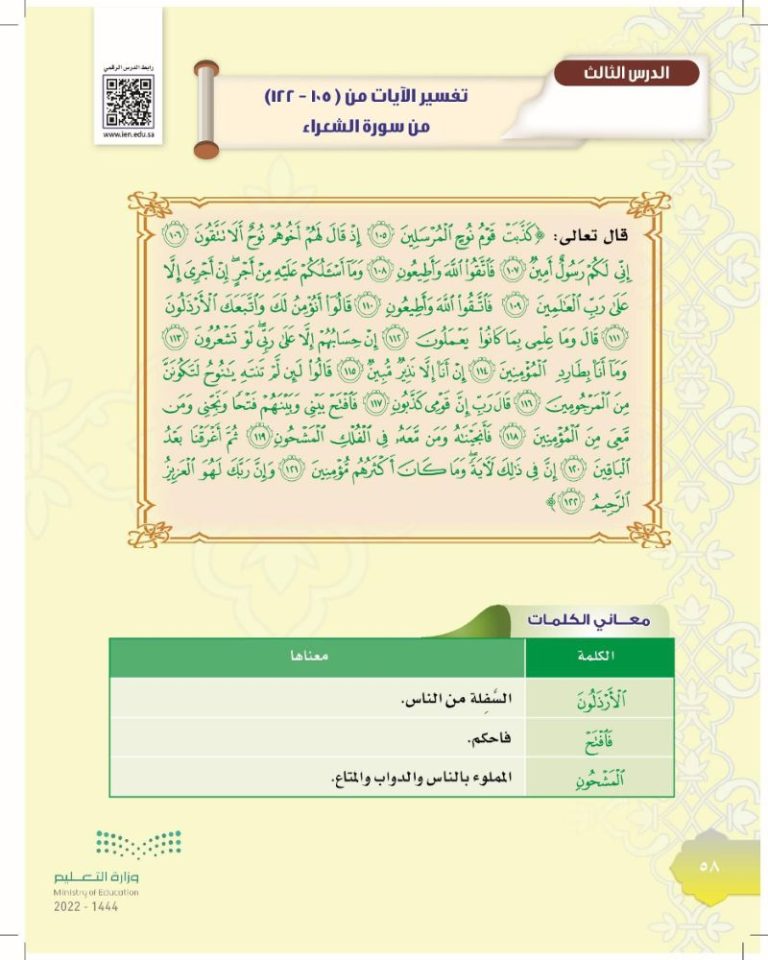 رابط الدرس الرقمي
www.ien.edu.sa
الدرس الثالث
تفسير الآيات من (١٠٥ - ١٢٢)
من سورة الشعراء
قال تعالى: ﴿كَذَّبَتْ قَوْمُ نُوحٍ الْمُرْسَلِينَ ١٠٥ إِذْ قَالَ لَهُمْ أَخُوهُمْ نُوحٌ أَلَا تَتَّقُونَ ١٠٦
إِنِّي لَكُمْ رَسُولٌ أَمِينٌ ١٠٧ فَاتَّقُوا اللَّهَ وَأَطِيعُونِ ١٠٨ وَمَا أَسْأَلُكُمْ عَلَيْهِ مِنْ أَجْرٍ إِنْ أَجْرِيَ إِلَّا
عَلَىٰ رَبِّ الْعَالَمِينَ ١٠٩ فَاتَّقُوا اللَّهَ وَأَطِيعُونِ ١١٠ قَالُوا أَنُؤْمِنُ لَكَ وَاتَّبَعَكَ الْأَرْذَلُونَ
١١١ قَالَ وَمَا عِلْمِي بِمَا كَانُوا يَعْمَلُونَ ١١٢ إِنْ حِسَابُهُمْ إِلَّا عَلَىٰ رَبِّي لَوْ تَشْعُرُونَ ١١٣
وَمَا أَنَا بِطَارِدِ الْمُؤْمِنِينَ ١١٤ إِنْ أَنَا إِلَّا نَذِيرٌ مُّبِينٌ ١١٥ قَالُوا لَئِن لَّمْ تَنتَهِ يَا نُوحُ لَتَكُونَنَّ
مِنَ الْمَرْجُومِينَ ١١٦ قَالَ رَبِّ إِنَّ قَوْمِي كَذَّبُونِ ١١٧ فَافْتَحْ بَيْنِي وَبَيْنَهُمْ فَتْحًا وَنَجِّنِي وَمَن
مَّعِيَ مِنَ الْمُؤْمِنِينَ ١١٨ فَأَنجَيْنَاهُ وَمَن مَّعَهُ فِي الْفُلْكِ الْمَشْحُونِ ١١٩ ثُمَّ أَغْرَقْنَا بَعْدُ
الْبَاقِينَ ١٢٠ إِنَّ فِي ذَٰلِكَ لَآيَةً وَمَا كَانَ أَكْثَرُهُم مُّؤْمِنِينَ ١٢١ وَإِنَّ رَبَّكَ لَهُوَ الْعَزِيزُ
الرَّحِيمُ ١٢٢﴾
معاني الكلمات
الكلمة معناها
الْأَرْذَلُونَ السَّفِلة من الناس.
فَافْتَحْ فاحكم.
الْمَشْحُونِ المملوء بالناس والدواب والمتاع.
وزارة التعليم
Ministry of Education
2022 - 1444
٥٨